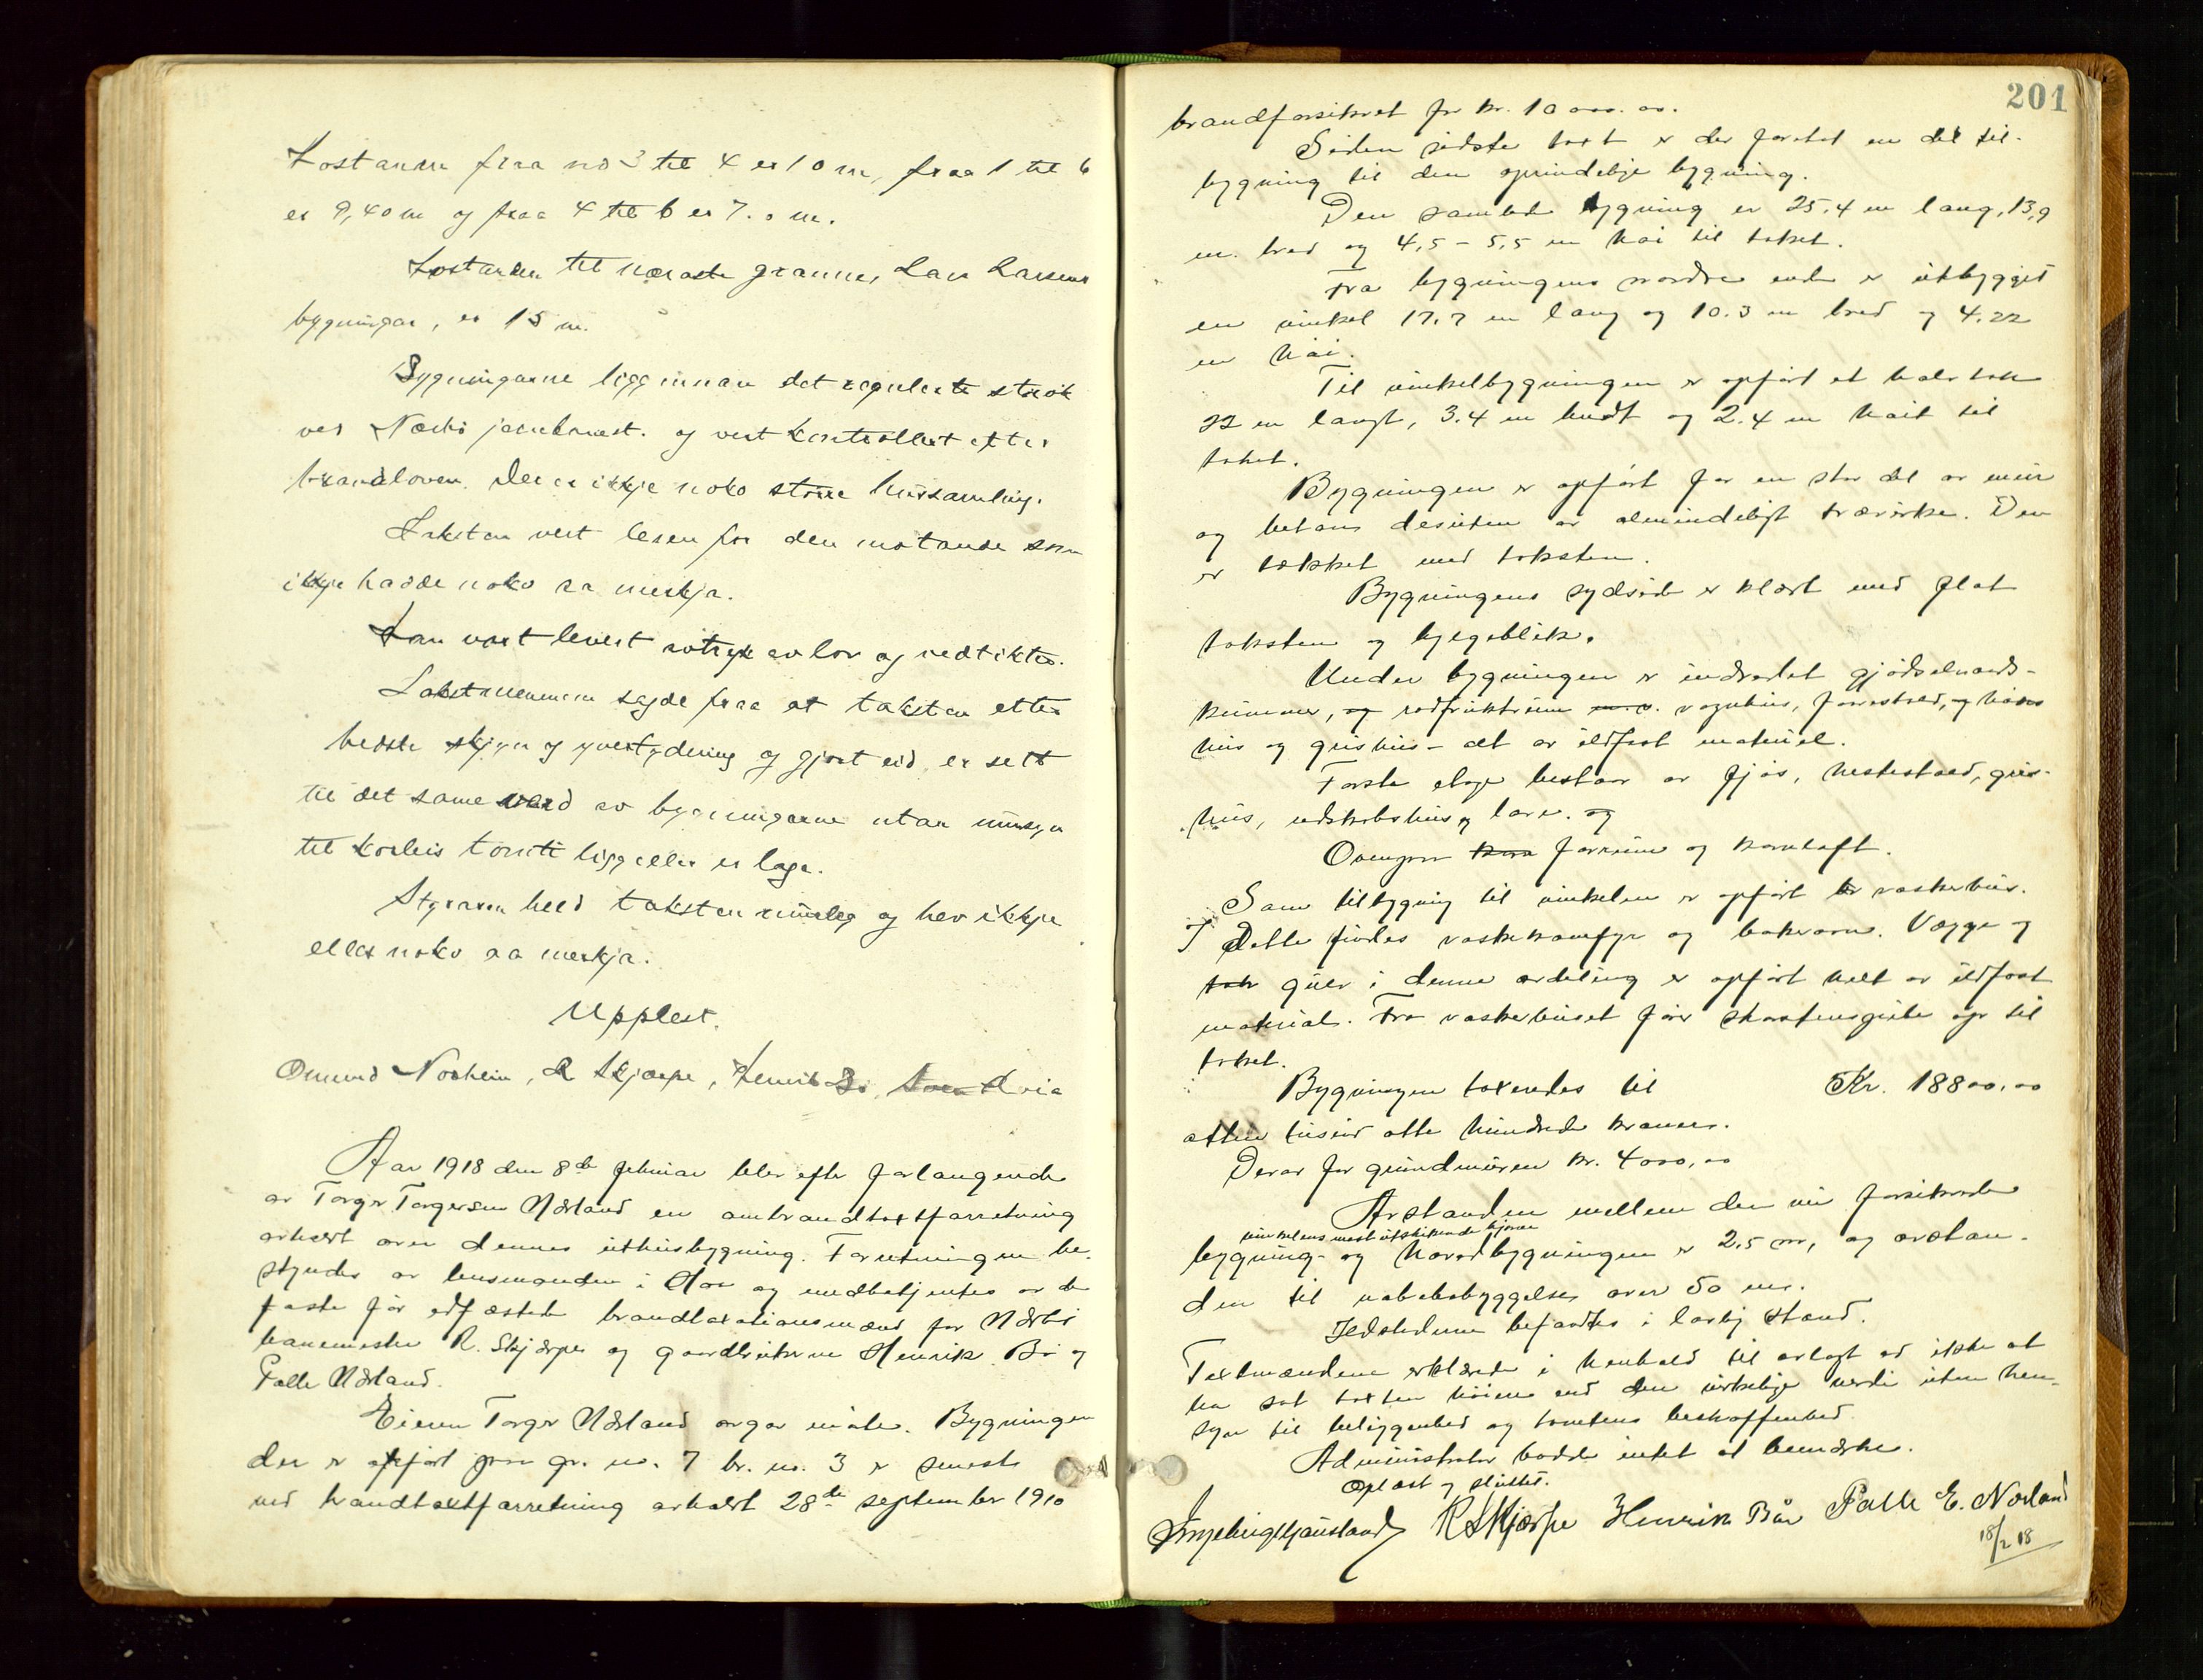 fraa no 3 til 4 er 10 m, fraa 1 til 6
er 9,40 m og fraa 4 til 6 er 7.0 m.
til næraste granne, Lars Larsens
bygningar, er 15 m.
Bygningarne ligg innan det regulerte strøk
ved Nærbø jarnbanest. og vert kontrollert etter
brandloven. Der er ikkje noko større hussamling.
Taksten vert lesen for den møtande som
ikkje hadde noko aa merkja.
Han vart levert avtryk av lov og vedtikter.
Takstmennene sagde fraa at taksten etter
beste skjyn og yvertydning og gjort eid, er sett
til det same verd av bygningarne utan umsyn
til korleis tomti ligg eller er laga.
Styraren held taksten rimeleg og hev ikkje
elles noko aa merkja.
Upplest.
Omund Norheim, R Skjærpe, Henrik Bø,
Aar 1918 den 8de februar blev efter forlangende
av Torger Torgersen Nærland en ombrandtaxtforretning
avholdt over dennes uthusbygning. Forretningen be-
styredes av lensmanden i Haa og medbetjentes av de
faste før edfæstede brandtaxationsmænd for Nærbø
banemester R. Skjærpe og gaardbrukerne Henrik Bø og
Palle Nærland.
Eieren Torger Nærland avgav møte. Bygningen
der er opført paa gr. no. 7 br. no. 3 er seneste
ved brandtaxtforretning avholdt 28de september 1910
201
brandforsikret for kr. 10 000.00.
Siden sidste taxt er der foretat en del til-
bygning til den oprindelige bygning.
Den samlede bygning er 25,4 m lang, 13,9
m. bred og 4,5 - 5,5 m høi til taket.
Fra bygningens nordre ende er utbygget
en vinkel 17.7 m lang og 10.3 m bred og 4.22
m høi.
Til vinkelbygningen er opført et halvtak
22 m langt, 3.4 m bredt og 2.4 m høit til
taket.
Bygningen er opført for en stor del av mur
og betong desuten av almindeligt trævirke. Den
er tækket med taksten.
Bygningens sydside er klædt med flat
taksten og bølgeblik.
Under bygningen er indredet gjødselvands-
kummer, og rodfruktrum m.v. vognhus, faarestald, og høns
hus og grishus - alt av ildfast materiel.
Første etage bestaar av fjøs, hestestald, gris-
hus, redskabshus og lave. og
Ovenpaa korn forrum og kornloft.
Som tilbygning til vinkelen er opført vaskerhus.
I Dette findes vaskekomfyr og bakerovn. Vægge og
tak gulv i denne avdeling er opført helt av ildfast
material. Fra vaskerhuset fører skorstenspibe op til
taket.
Bygningen taxeredes til Kr. 18800.00
atten tusind otte hundrede kroner.
Derav for grundmuren kr. 4000,00
Avstanden mellem den nu forsikrede
vinkelens mest utstikkende hjørne
bygning - og hovedbygningen er 2,5 m, og avstan-
den til nabobebyggelser over 50 m.
Ildstederne befandtes i lovlig stand.
Taxtmændene erklærede i henhold til avlagt ed ikke at
ha sat taxten høiere end den virkelige verdi uten hen-
syn til beliggenhed og tomtens beskaffenhed.
Administrator hadde intet at bemærke.
Oplæst og sluttet.
R Skjærpe Henrik Bø Palle E. Nærland
18/2 18